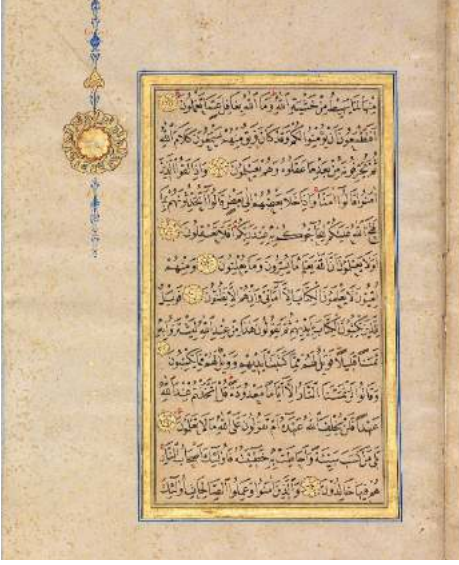 مِنْهَا لَمَا يَهْبِطُ مِنْ خَشْيَةِ اللهِ وَمَا اللهُ بِغَافِلٍ عَمَّا تَعْمَلُونَ
أَفَتَطْمَعُونَ أَنْ يُؤْمِنُوا لَكُمْ وَقَدْ كَانَ فَرِيقٌ مِنْهُمْ يَسْمَعُونَ كَلَامَ اللهِ
ثُمَّ يُحَرِّفُونَهُ مِنْ بَعْدِ مَا عَقَلُوهُ وَهُمْ يَعْلَمُونَ وَإِذَا لَقُوا الَّذِينَ
آمَنُوا قَالُوا آمَنَّا وَإِذَا خَلَا بَعْضُهُمْ إِلَى بَعْضٍ قَالُوا أَتُحَدِّثُونَهُمْ بِمَا
فَتَحَ اللهُ عَلَيْكُمْ لِيُحَاجُّوكُمْ بِهِ عِنْدَ رَبِّكُمْ أَفَلَا تَعْقِلُونَ
أَوَلَا يَعْلَمُونَ أَنَّ اللهَ يَعْلَمُ مَا يُسِرُّونَ وَمَا يُعْلِنُونَ وَمِنْهُمْ
أُمِّيُّونَ لَا يَعْلَمُونَ الْكِتَابَ إِلَّا أَمَانِيَّ وَإِنْ هُمْ إِلَّا يَظُنُّونَ فَوَيْلٌ
لِلَّذِينَ يَكْتُبُونَ الْكِتَابَ بِأَيْدِيهِمْ ثُمَّ يَقُولُونَ هَذَا مِنْ عِنْدِ اللهِ لِيَشْتَرُوا بِهِ
ثَمَنًا قَلِيلًا فَوَيْلٌ لَهُمْ مِمَّا كَتَبَتْ أَيْدِيهِمْ وَوَيْلٌ لَهُمْ مِمَّا يَكْسِبُونَ
وَقَالُوا لَنْ تَمَسَّنَا النَّارُ إِلَّا أَيَّامًا مَعْدُودَةً قُلْ أَتَّخَذْتُمْ عِنْدَ اللهِ
عَهْدًا فَلَنْ يُخْلِفَ اللهُ عَهْدَهُ أَمْ تَقُولُونَ عَلَى اللهِ مَا لَا تَعْلَمُونَ
بَلَى مَنْ كَسَبَ سَيِّئَةً وَأَحَاطَتْ بِهِ خَطِيئَتُهُ فَأُولَئِكَ أَصْحَابُ النَّارِ
هُمْ فِيهَا خَالِدُونَ وَالَّذِينَ آمَنُوا وَعَمِلُوا الصَّالِحَاتِ أُولَئِكَ